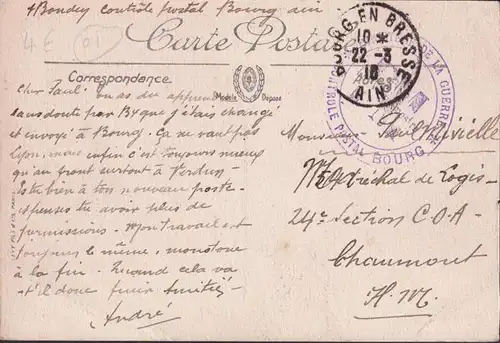 Bondey contrôle postal Bourg ain
4€
Carte Postale
Correspondance
Modèle Déposé
BOURG-EN-BRESSE
10 *
22-3
16
AIN
DE LA GUERRE
CONTROLE POSTAL
BOURG
Cher Paul. Tu as du apprendre
sans doute par By que j'étais changé
et envoyé à Bourg. Ça ne vaut pas
Lyon, mais enfin c'est toujours mieux
qu'au front surtout à Verdun
Es tu bien à ton nouveau poste
espères tu avoir plus de
permissions. Mon travail est
toujours le même, monotone
à la fin. Quand cela va
t'il donc finir Amitiés
André
Monsieur Paul
Maréchal de Logis
24e Section C.O.A
Chaumont
H.M.